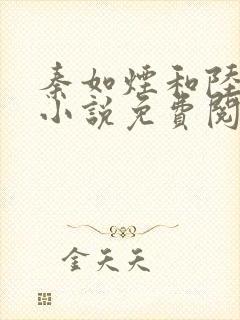 秦如煙和陸
小說免費閱
金天天